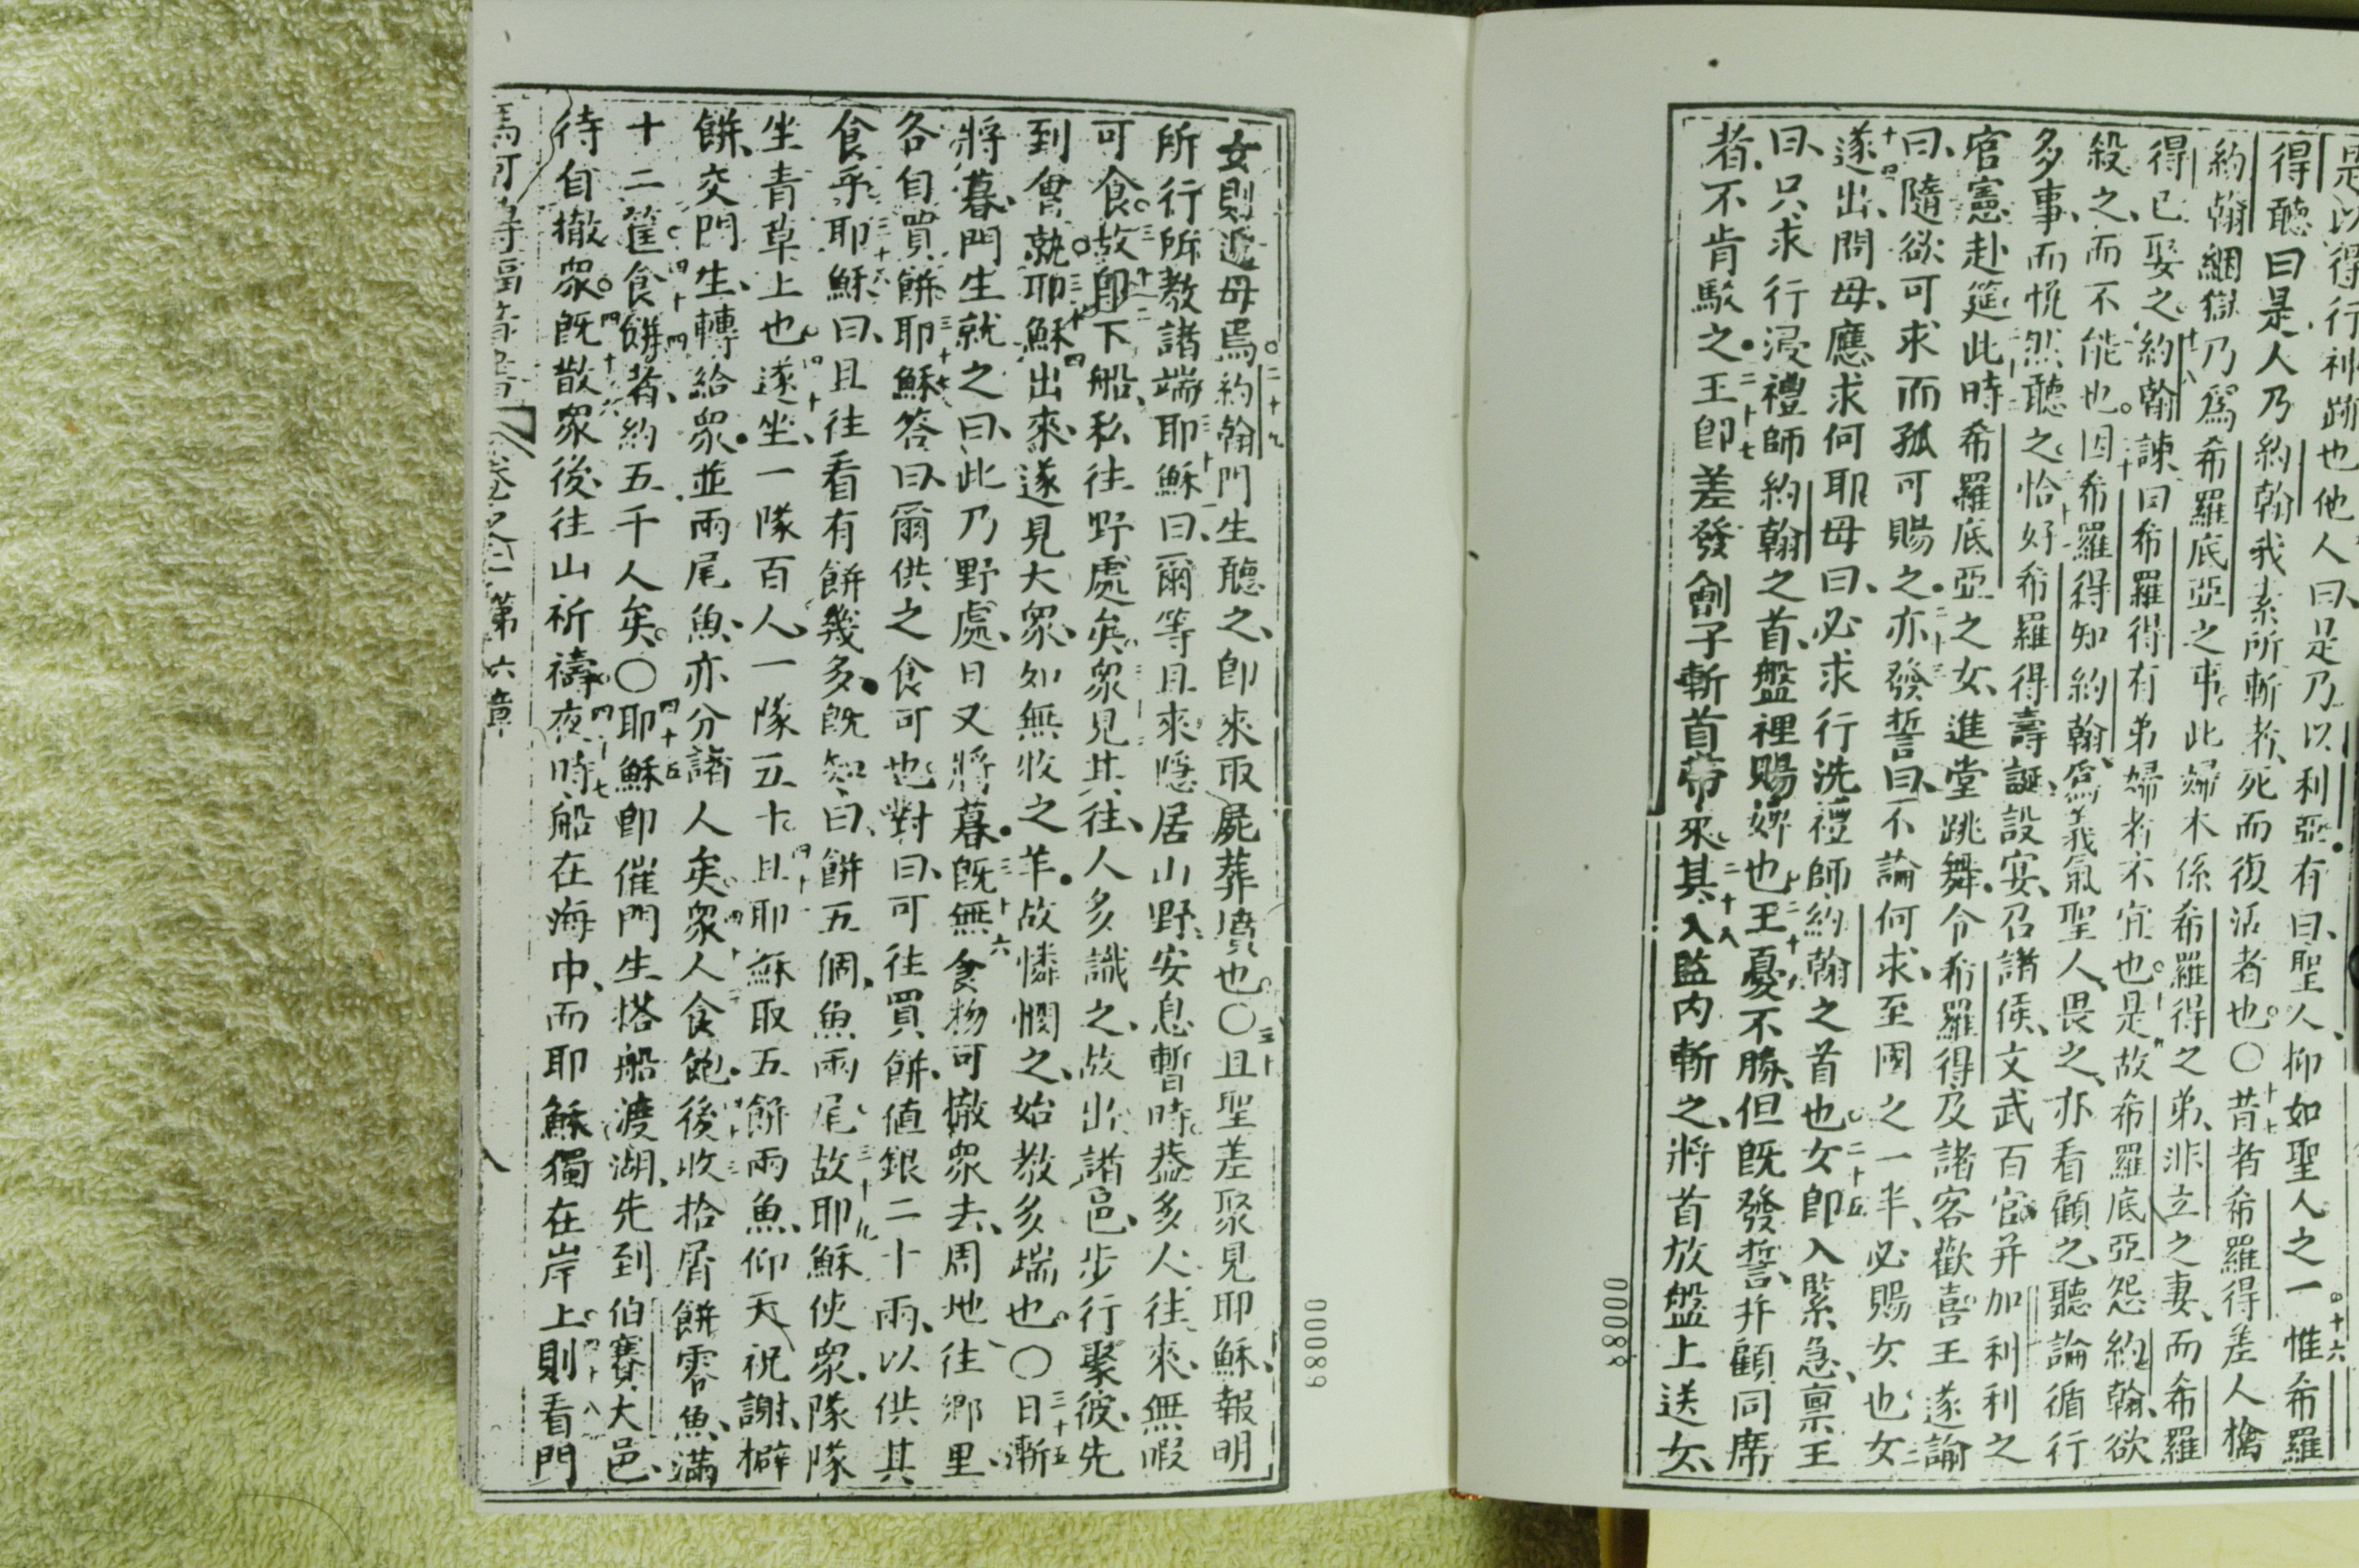 是以得行神跡也他人曰是乃以利亞有曰聖人抑如聖人之一十六惟希羅
得聽曰是人乃約翰我素所斬者死而復活者也〇十七昔者希羅得差人擒
約翰綑獄乃為希羅底亞之事此婦本係希羅得之弟非立之妻而希羅
得已娶之十八約翰諫曰希羅得有弟婦者不宜也是故希羅底亞怨約翰欲
殺之而不能也因希羅得知約翰為義氣聖人畏之亦看顧之聽論循行
多事而悅然聽之恰好希羅得壽誕設宴召諸侯文武百官并加利利之
官憲赴筵此時希羅底亞之女進堂跳舞令希羅得及諸客歡喜王遂諭
曰隨欲可求而孤可賜之二十三亦發誓曰不論何求至國之一半必賜女也女
遂出問母應求何耶母曰必求行洗禮師約翰之首也二十五女即入緊急稟王
曰只求行浸禮師約翰之首盤裡賜婢也王憂不勝但既發誓并顧同席
者不肯駁之二十七王即差發劊子斬首帶來其二十八入監內斬之將首放盤上送女
00088
女則遞母焉二十九約翰門生聽之即來取屍葬墳也〇三十且聖差聚見耶穌報明
所行所教諸端三十一耶穌曰爾等且來隱居山野安息暫時葢多人往來無暇
可食三十二故即下船私往野處矣眾見其往人多識之故出諸邑步行聚彼先
到會就耶穌三十四耶穌出來遂見大眾如無牧之羊故憐憫之始教多端也〇三十五日漸
將暮門生就之曰此乃野處日又將暮三十六既無食物可撤眾去周地往鄉里
各自買餅三十七耶穌答曰爾供之食可也對曰可往買餅值銀二十兩以供其
食乎三十八耶穌曰且往看有餅幾多既知曰餅五個魚兩尾三十九故耶穌使眾隊隊
坐青草上也四十遂坐一隊百人一隊五十四十一且耶穌取五餅兩魚仰天祝謝擗
餅交門生轉給眾並兩尾魚亦分諸人矣眾人食飽後收拾屑餅零魚滿
十二筐四十四食餅者約五千人矣〇四十五耶穌即催門生搭船渡湖先到伯賽大邑
待自撤眾四十六既散眾後往山祈禱四十七夜時船在海中而耶穌獨在岸上四十八則看門
馬可傳福音書 卷之二 第六章 八
00089